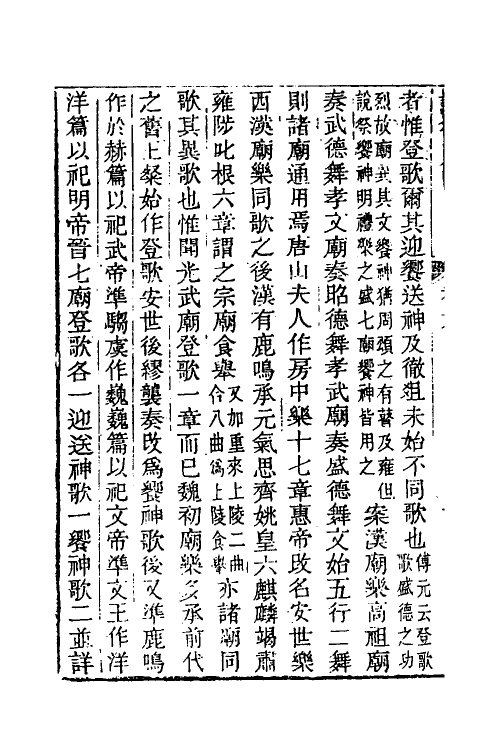 者惟登歌爾其迎饗送神及徹俎未始不同歌也傅元云登歌歌盛德之功
烈故廟異其文饗神猶周頌之有瞽及雍但說祭饗神明禮樂之盛七廟饗神皆用之案漢廟樂高祖廟
奏武德舞孝文廟奏昭德舞孝武廟奏盛德舞文始五行二舞
則諸廟通用焉唐山夫人作房中樂十七章惠帝改名安世樂
西漢廟樂同歌之後漢有鹿鳴承元氣思齊姚皇六麒麟竭肅
雍陟叱根六章謂之宗廟食舉又加重來上陵二曲合八曲爲上陵食舉亦諸廟同
歌其異歌也惟聞光武廟登歌一章而已魏初廟樂多承前代
之舊王粲始作登歌安世後繆襲奏改爲饗神歌後又準鹿鳴
作於赫篇以祀武帝準騶虞作巍巍篇以祀文帝準文王作洋
洋篇以祀明帝晉七廟登歌各一迎送神歌一饗神歌二並詳